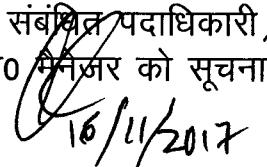 संबंधित पदाधिकारी,
मैनेजर को सूचना
16/11/2017